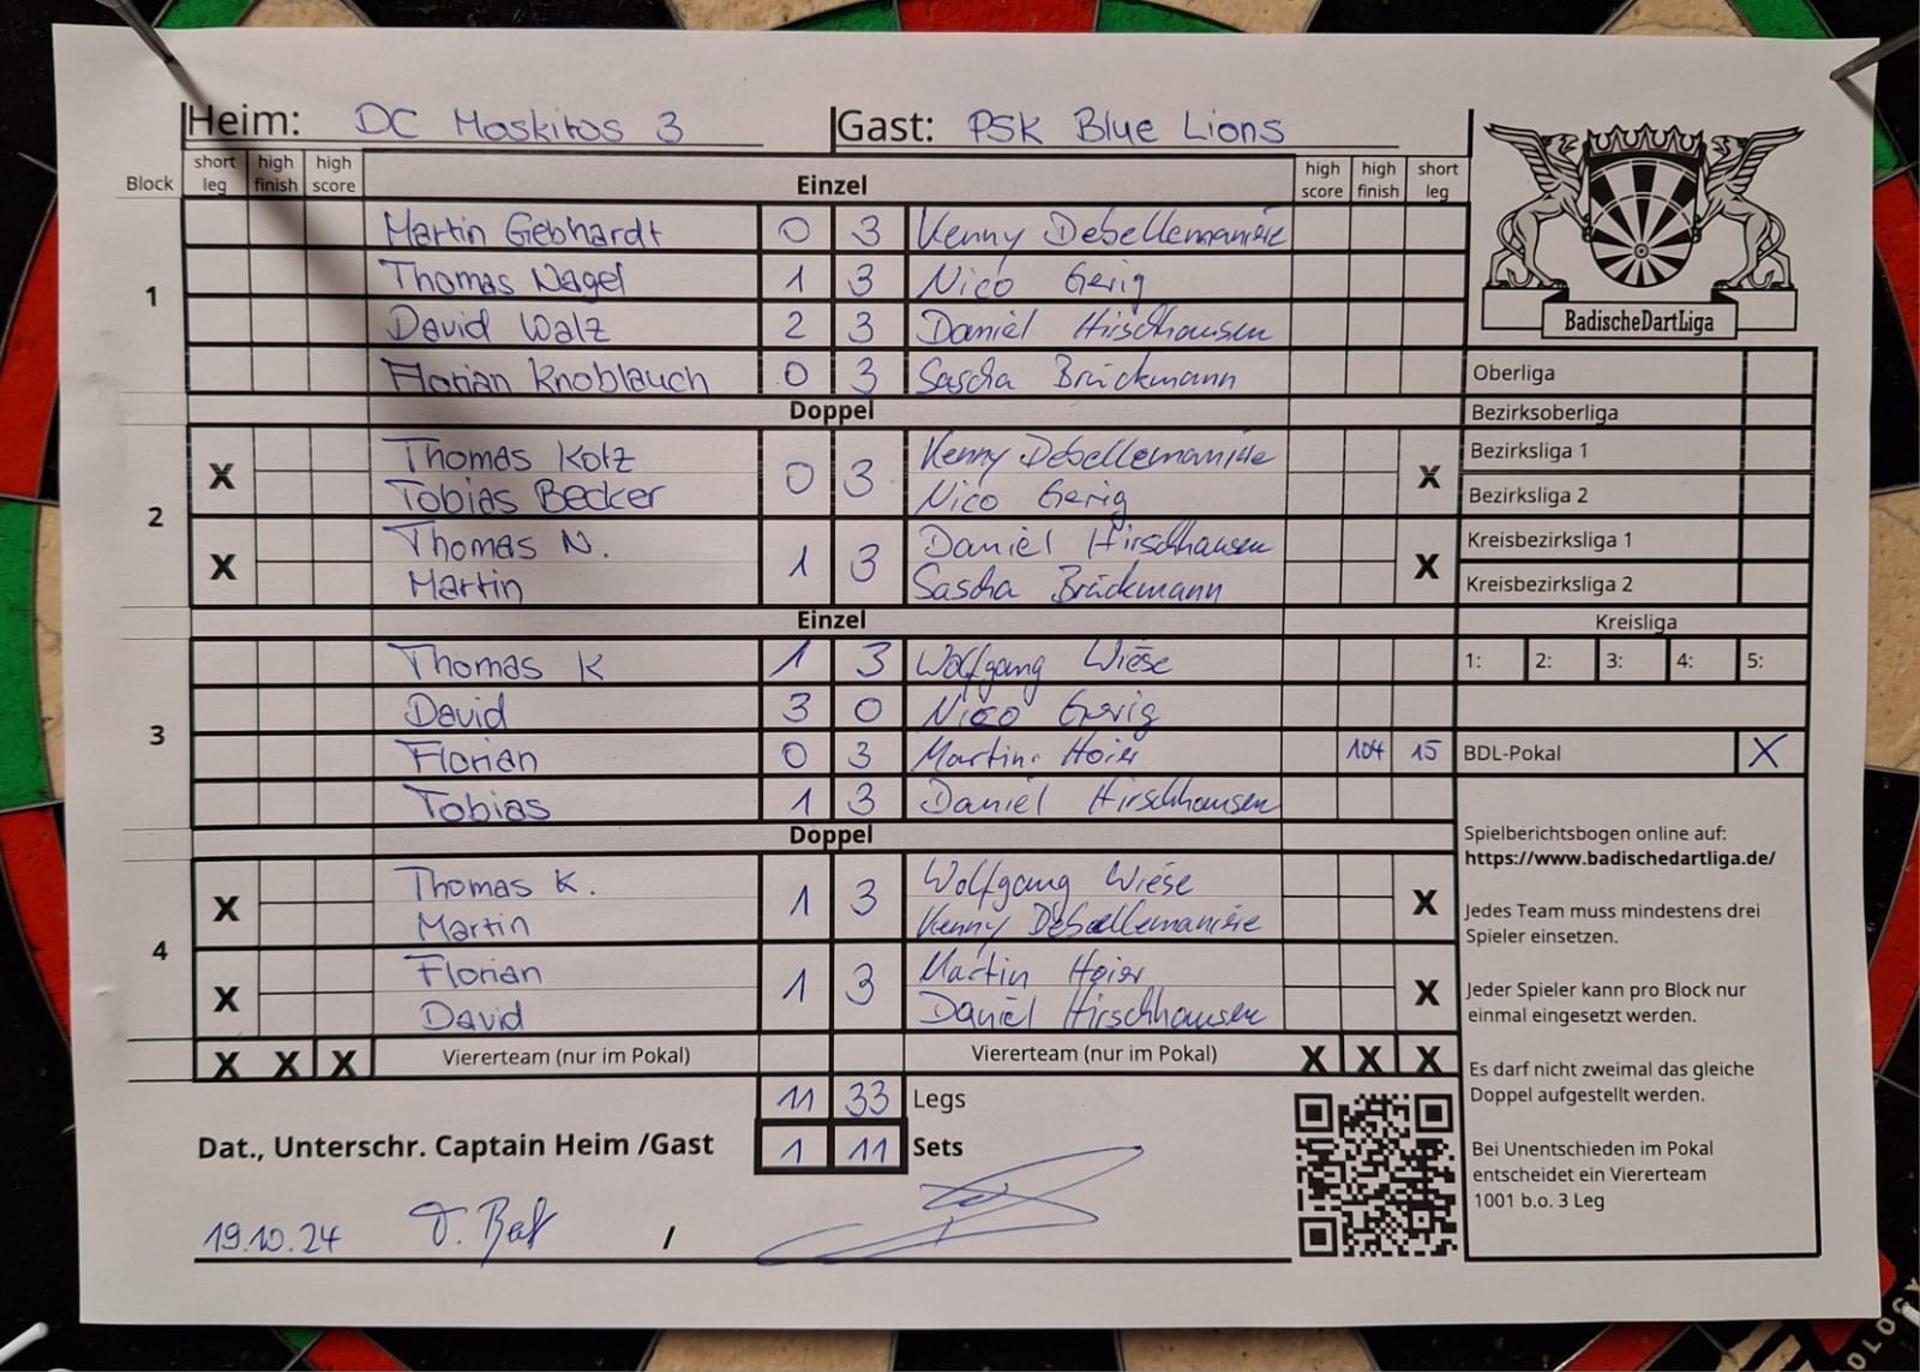 Heim: DC Moskitos 3 Gast: PSK Blue Lions
Block short leg high finish high score Einzel high score high finish short leg
1
Martin Gebhardt 0 3 Kenny Debellemanière
Thomas Nagel 1 3 Nico Gerig
David Walz 2 3 Daniel Hirschhausen
Florian Knoblauch 0 3 Sascha Brückmann
Doppel
2
X Thomas Kotz 0 3 Kenny Debellemanière X
Tobias Becker Nico Gerig
X Thomas N. 1 3 Daniel Hirschhausen X
Martin Sascha Brückmann
Einzel
3
Thomas K 1 3 Wolfgang Wiese
David 3 0 Nico Gerig
Florian 0 3 Martin Hoier 104 15
Tobias 1 3 Daniel Hirschhausen
Doppel
4
X Thomas K. 1 3 Wolfgang Wiese X
Martin Kenny Debellemanière
X Florian 1 3 Martin Hoier X
David Daniel Hirschhausen
X X X Viererteam (nur im Pokal) Viererteam (nur im Pokal) X X X
11 33 Legs
Dat., Unterschr. Captain Heim /Gast 1 11 Sets
19.10.24 /
BadischeDartLiga
Oberliga
Bezirksoberliga
Bezirksliga 1
Bezirksliga 2
Kreisbezirksliga 1
Kreisbezirksliga 2
Kreisliga
1: 2: 3: 4: 5:
BDL-Pokal X
Spielberichtsbogen online auf:
https://www.badischedartliga.de/
Jedes Team muss mindestens drei
Spieler einsetzen.
Jeder Spieler kann pro Block nur
einmal eingesetzt werden.
Es darf nicht zweimal das gleiche
Doppel aufgestellt werden.
Bei Unentschieden im Pokal
entscheidet ein Viererteam
1001 b.o. 3 Leg